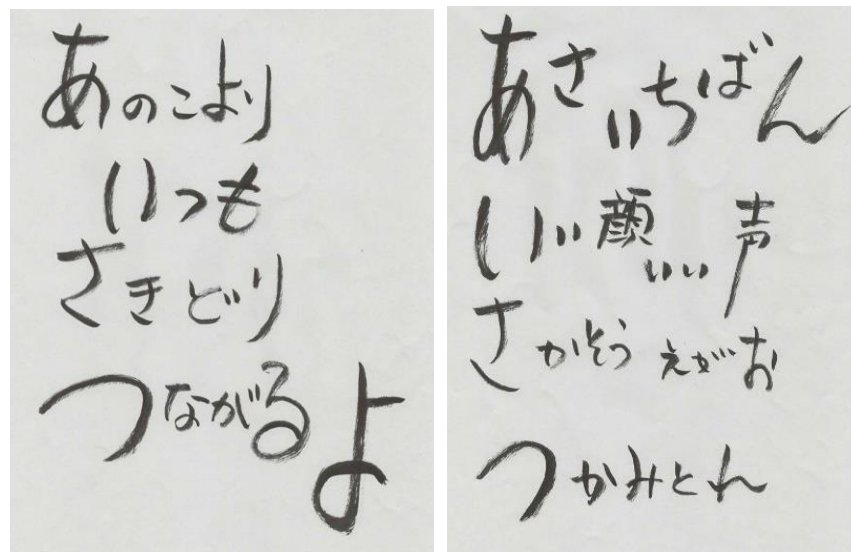 あのこより
いつも
さきどり
つながるよ
あさいちばん
いい顔いい声
さかそうえがお
つかみとれ